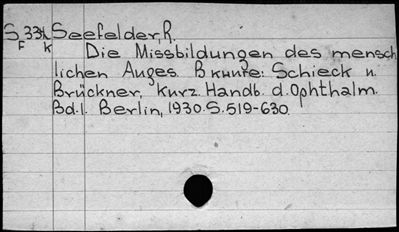 S 334 Seefelder, R.
F K
Die Missbildungen des mensch
lichen Auges. В книге: Schieck u.
Brückner, Kurz. Handb. d. Ophthalm.
Bd. I. Berlin, 1930. S. 519-630.